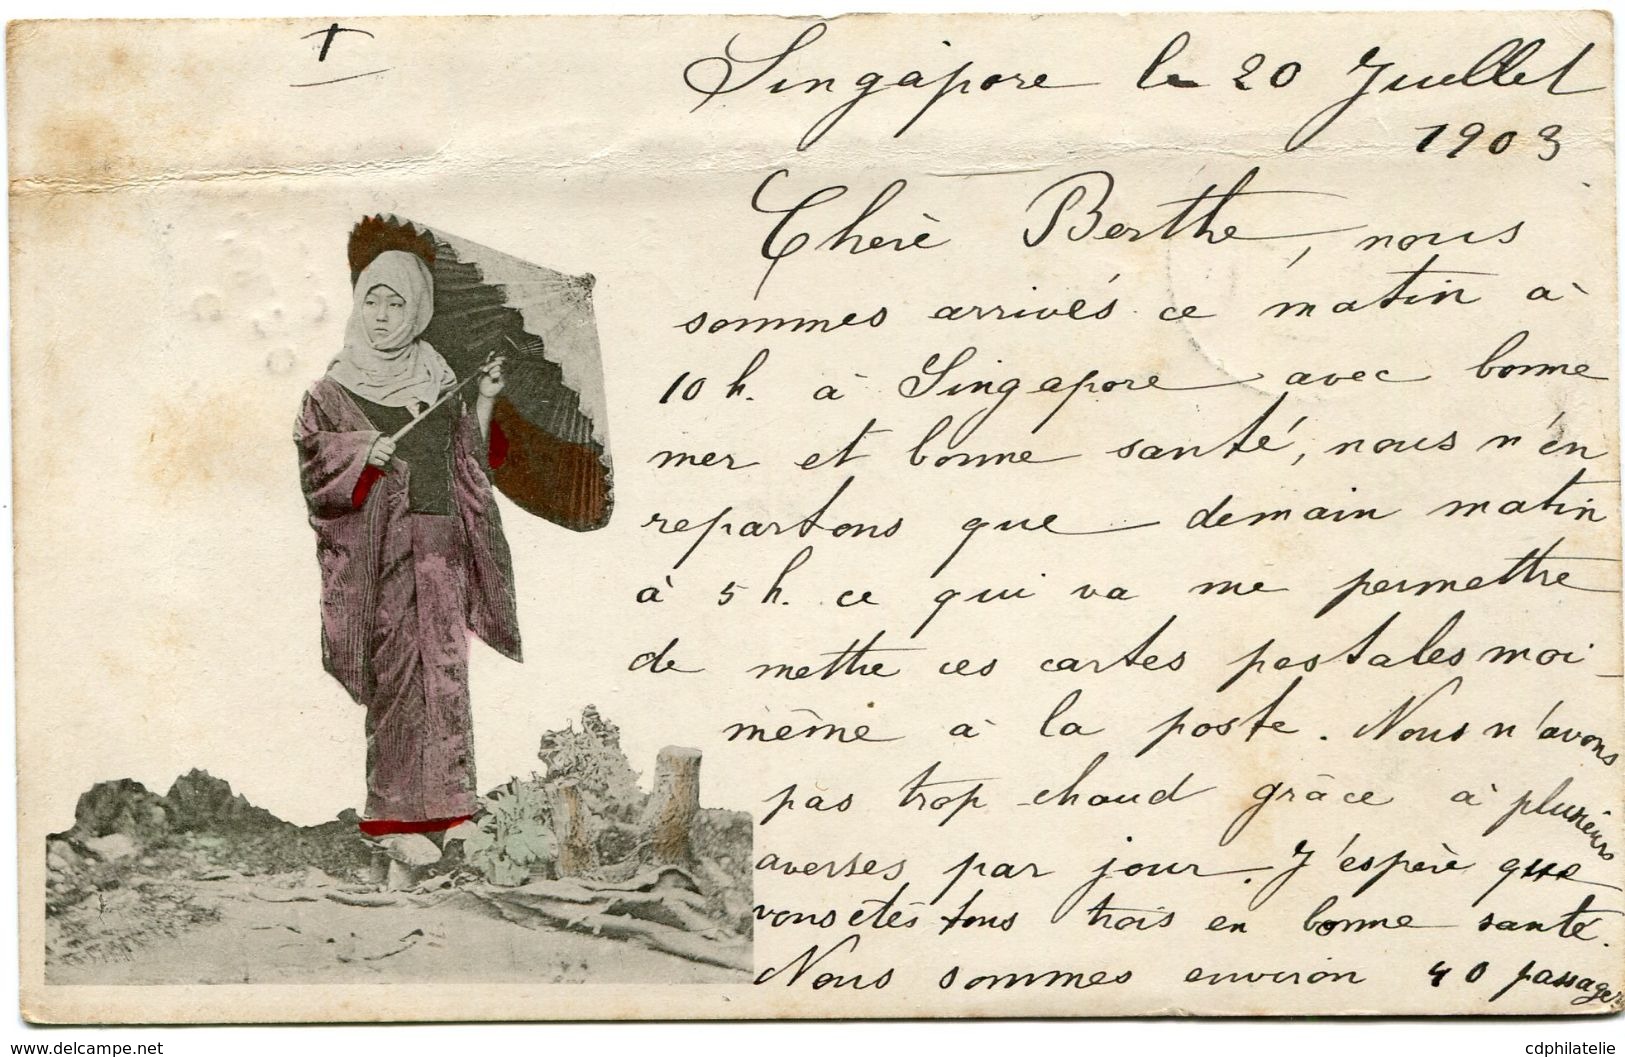 I
Singapore le 20 Juillet
1903
Chère Berthe, nous
sommes arrivés ce matin à
10 h. à Singapore avec bonne
mer et bonne santé, nous n'en
repartons que demain matin
à 5 h. ce qui va me permettre
de mettre ces cartes postales moi-
même à la poste. Nous n'avons
pas trop chaud grâce à plusieurs
averses par jour. J'espère que
vous êtes tous trois en bonne santé.
Nous sommes environ 40 passagers
www.delcampe.net
cdphilatelie